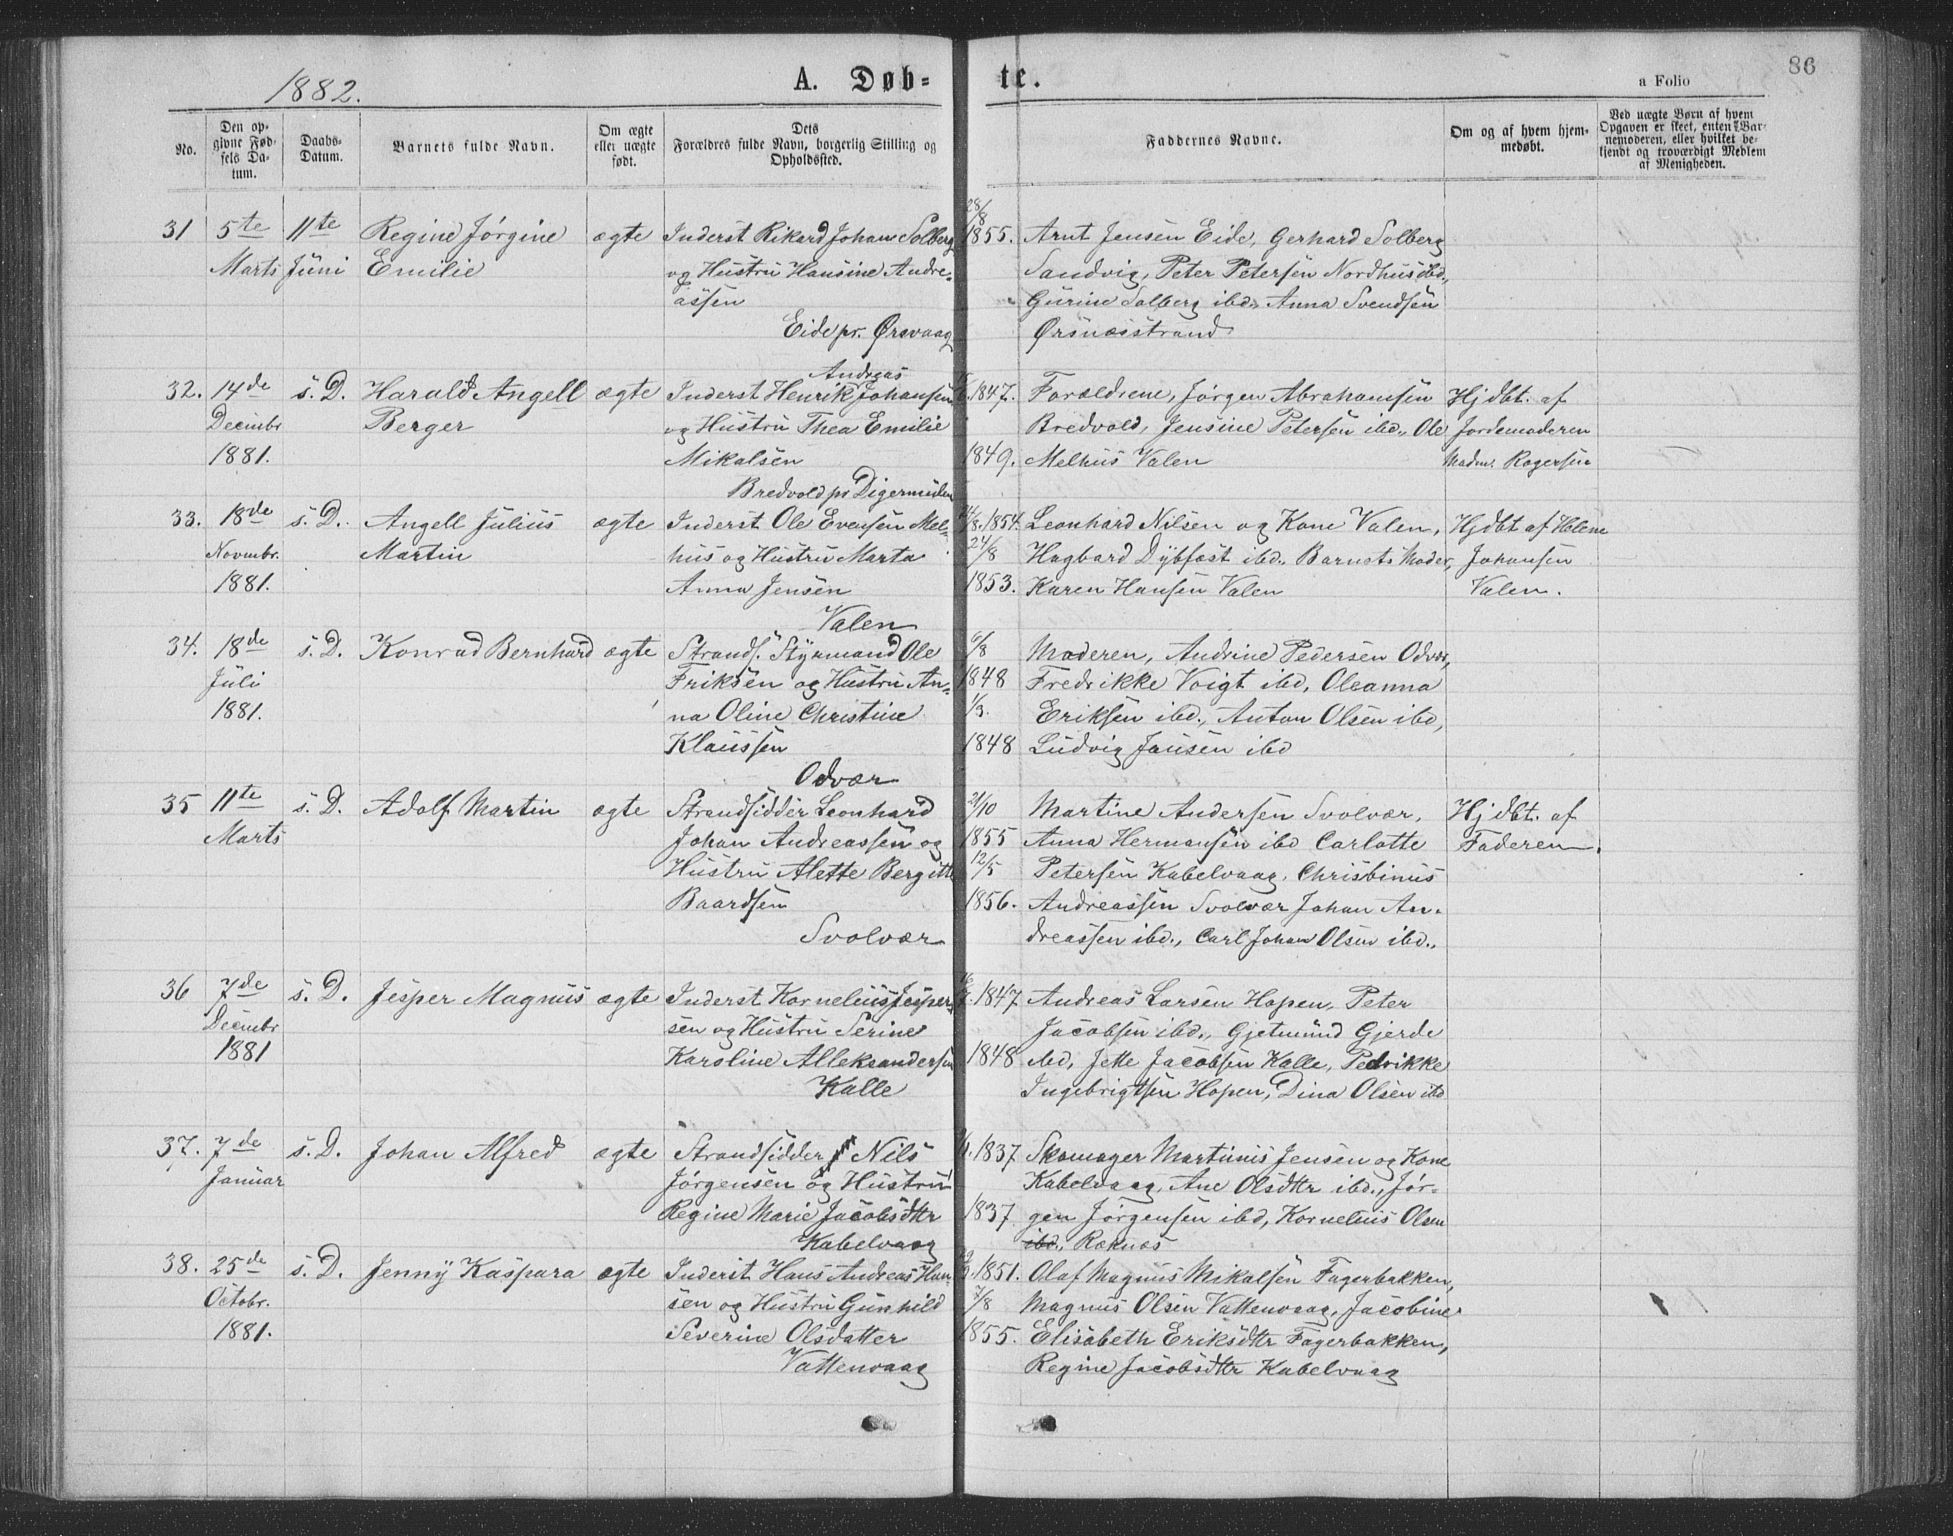 1882.
A. Døb-
te.
a Folio
86
No.
Den op-
givne Fød-
sels Da-
tum.
Daabs-
Datum.
Barnets fulde Navn.
Om ægte
eller uægte
født.
Dets
Forældres fulde Navn, borgerlig Stilling og
Opholdssted.
Faddernes Navne.
Om og af hvem hjem-
medøbt.
Ved uægte Børn af hvem
Opgaven er skeet, enten Bar-
nemoderen, eller hvilket be-
kjendt og troværdigt Medlem
af Menigheden.
31
5te
Marts
11te
Juni
Regine Jørgine
Emilie
ægte
Inderst Rikard Johan Solberg
og Hustru Hansine Andre-
assen
Eide pr. Ørsvaag
28/8
1855.
Arnt Jensen Eide, Gerhard Solberg
Sandvig, Peter Petersen Nordhus ibd.,
Gurine Solberg ibd., Anna Svendsen
Ørsnæsstrand
32.
14de
Decembr
1881.
s. D.
Harald Angell
Berger
ægte
Andreas
Inderst Henrik Johansen
og Hustru Thea Emilie
Mikalsen
Bredvold pr Digermulen
1847.
1849.
Forældrene, Jørgen Abrahamsen
Bredvold, Jensine Petersen ibd., Ole
Melhus Valen
Hjdbt. af
Jordemoderen
Madm. Rogersen
33.
18de
Novmbr.
1881.
s. D.
Angell Julius
Martin
ægte
Inderst Ole Evensen Mel-
hus og Hustru Marta
Anna Jensen
Valen
1854.
24/8
1853.
Leonhard Nilsen og Kone Valen,
Hagbard Dybfest ibd., Barnets Moder,
Karen Hansen Valen
Hjdbt af Helene
Johansen
Valen.
34.
18de
Juli
1881.
s. D.
Konrad Bernhard
ægte
Strands. Styrmand Ole
Friksen og Hustru An-
na Oline Christine
Klaussen
Odvær
6/8
1848
1/3.
1848
Moderen, Andrine Pedersen Odvær,
Fredrikke Voigt ibd, Oleanna
Eriksen ibd., Anton Olsen ibd,
Ludvig Jansen ibd
35
11te
Marts
s. D.
Adolf Martin
ægte
Strandsidder Leonhard
Johan Andreassen og
Hustru Alette Bergitte
Baardsen
Svolvær
21/10
1855
12/5
1856.
Martine Andersen Svolvær,
Anna Hermansen ibd Carlotte
Petersen Kabelvaag, Chrisbinus
Andreassen Svolvær Johan An-
dreassen ibd., Carl Johan Olsen ibd.,
Hjdbt. af
Faderen.
36
7de
Decmbr
1881
s. D.
Jesper Magnus
ægte
Inderst Kornelius Jesper-
sen og Hustru Serine
Karoline Alleksandersen
Kalle
1847
1848
Andreas Larsen Hopen, Peter
Jacobsen ibd., Gjetmund Gjerde
ibd, Jette Jacobsen Kalle, Pedrikke
Ingebrigtsen Hopen, Dina Olsen ibd
37.
7de
Januar
s. D.
Johan Alfred
ægte
Strandsidder Nils
Jørgensen og Hustru
Regine Marie Jacobsdtr
Kabelvaag
1837
1837
Skomager Martinus Jensen og Kone
Kabelvaag, Ane Olsdtr ibd., Jør-
gen Jørgensen ibd, Kornelius Olsen
ibd., Røknæs
38.
25de
Octobr.
1881.
s. D.
Jenny Kaspara
ægte
Inderst Hans Andreas Han-
sen og Hustru Gunhild
Severine Olsdatter
Vattenvaag
1851.
1855.
Olaf Magnus Mikalsen Fagerbakken,
Magnus Olsen Vattenvaag, Jacobine
Elisabeth Eriksdtr Fagerbakken,
Regine Jacobsdtr Kabelvaag